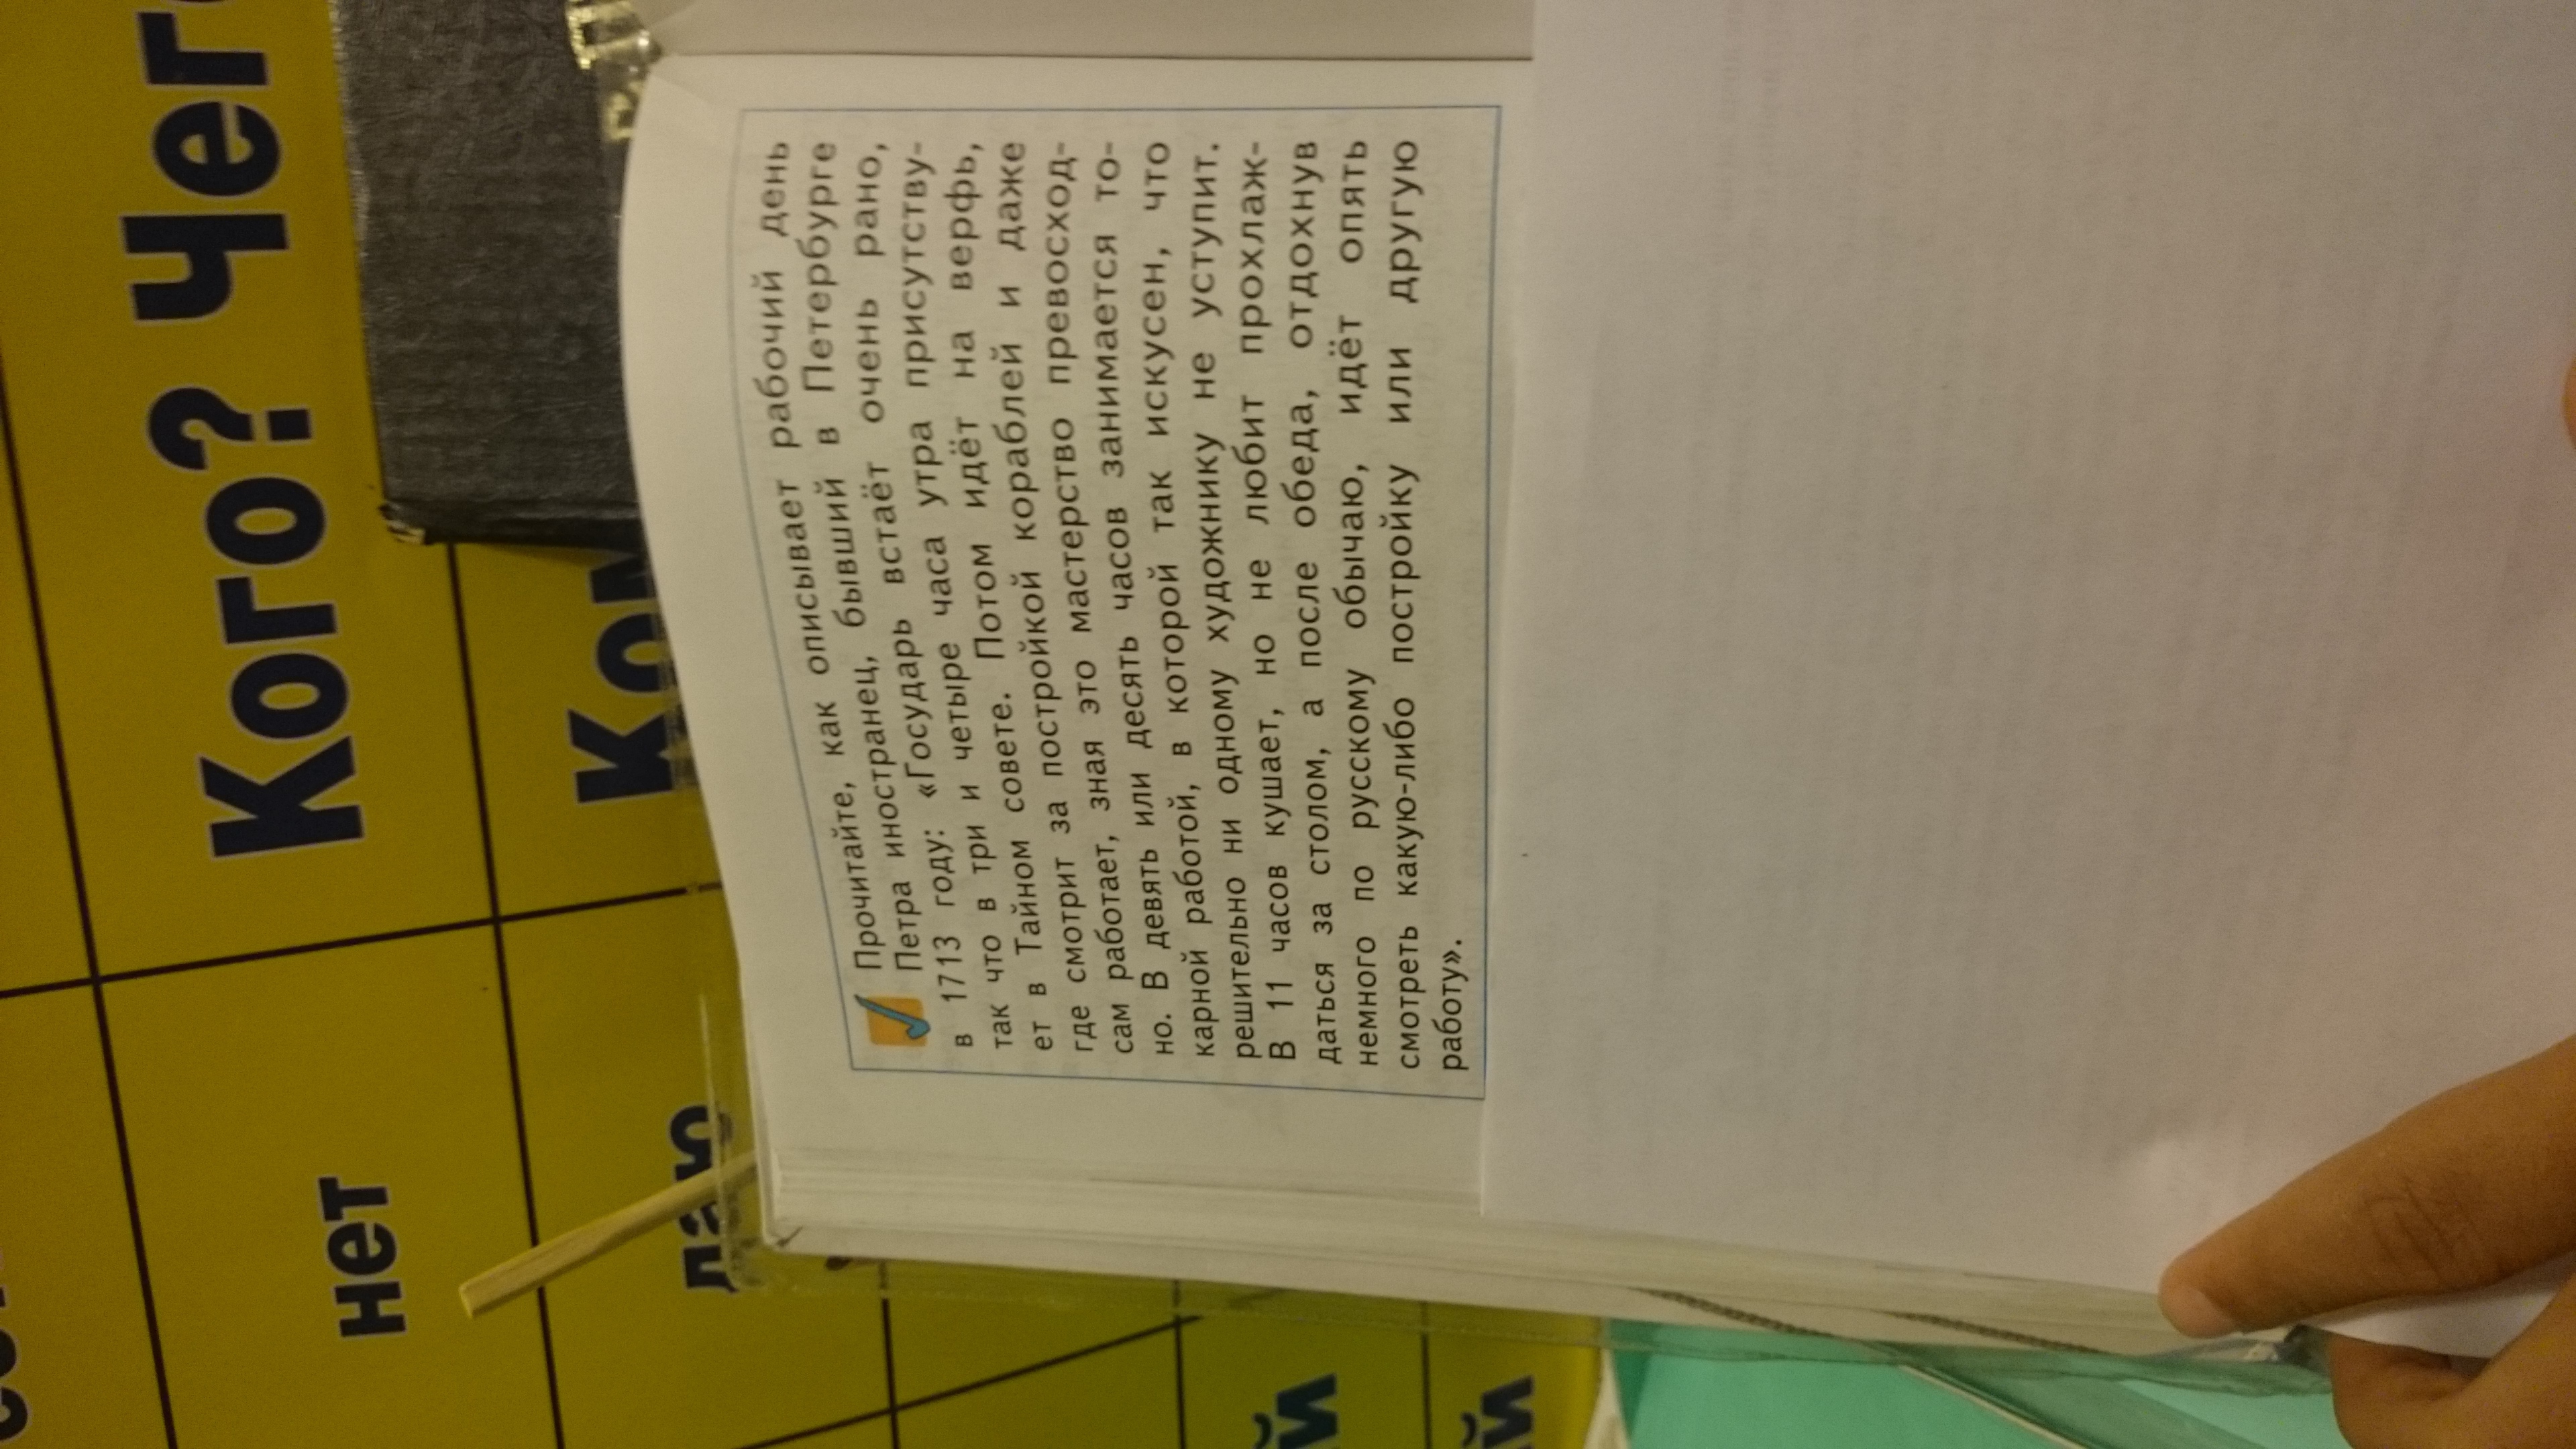 Прочитайте, как описывает рабочий день
Петра иностранец, бывший в Петербурге
в 1713 году: «Государь встаёт очень рано,
так что в три и четыре часа утра присутству-
ет в Тайном совете. Потом идёт на верфь,
где смотрит за постройкой кораблей и даже
сам работает, зная это мастерство превосход-
но. В девять или десять часов занимается то-
карной работой, в которой так искусен, что
решительно ни одному художнику не уступит.
В 11 часов кушает, но не любит прохлаж-
даться за столом, а после обеда, отдохнув
немного по русскому обычаю, идёт опять
смотреть какую-либо постройку или другую
работу».
нет
Кого? Чег
даю
Ком
й
й